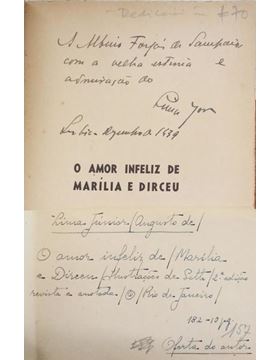 A Albino Forjaz de Sampaio
com a velha estima e
admiração do
O AMOR INFELIZ DE
MARÍLIA E DIRCEU
Lima Júnior / Augusto de /
O amor infeliz de / Marília
e Dirceu / Ilustrações de Seth / 2ª edição
revista e anotada / Rio de Janeiro /
182-10
157
Oferta do autor